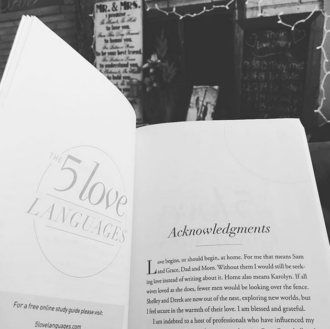 MR. & MRS.
I promise
to love you,
to honor you,
to be your best friend,
to understand
THE
5 love
LANGUAGES
For a free online study guide please visit:
5lovelanguages.com
Acknowledgments
Love begins, or should begin, at home. For me that means Sam
and Grace, Dad and Mom. Without them I would still be seek-
ing love instead of writing about it. Home also means Karolyn. If all
wives loved as she does, fewer men would be looking over the fence.
Shelley and Derek are now out of the nest, exploring new worlds, but
I feel secure in the warmth of their love. I am blessed and grateful.
I am indebted to a host of professionals who have influenced my